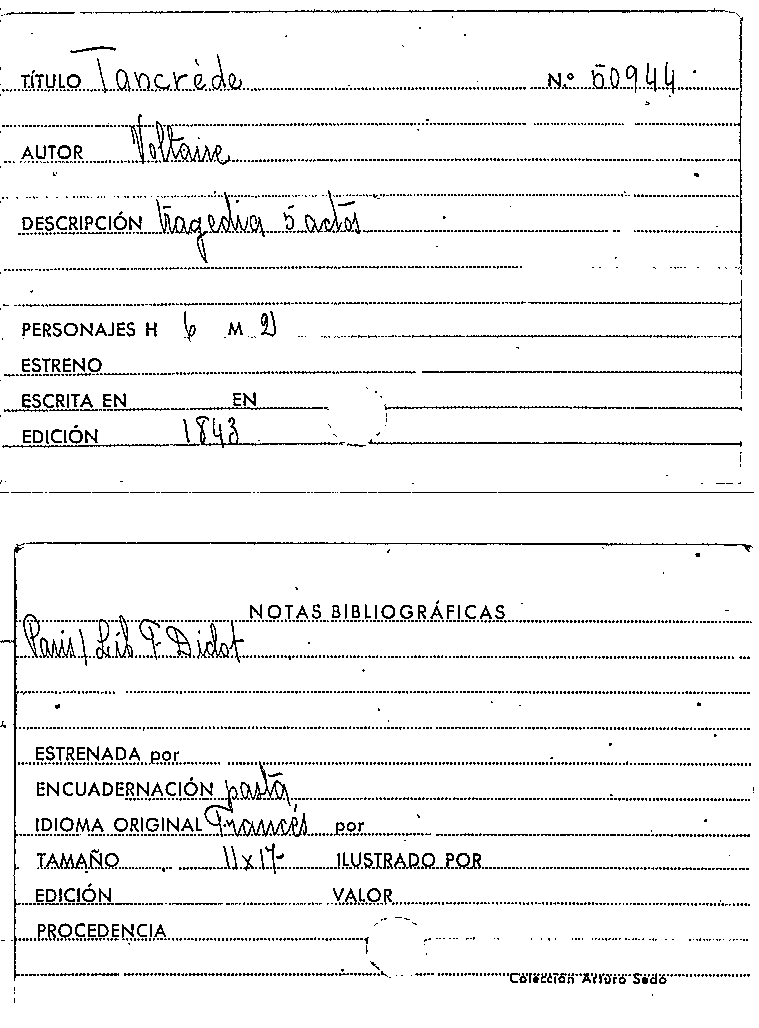 TÍTULO Tancrède N.º 50944
AUTOR Voltaire
DESCRIPCIÓN tragédia 5 actos
PERSONAJES H 6 M 2
ESTRENO
ESCRITA EN EN
EDICIÓN 1843
NOTAS BIBLIOGRÁFICAS
Paris / Lib F. Didot
ESTRENADA por
ENCUADERNACIÓN pasta
IDIOMA ORIGINAL Francés por
TAMAÑO 11x17 ILUSTRADO POR
EDICIÓN VALOR
PROCEDENCIA
Colección Arturo Sedó